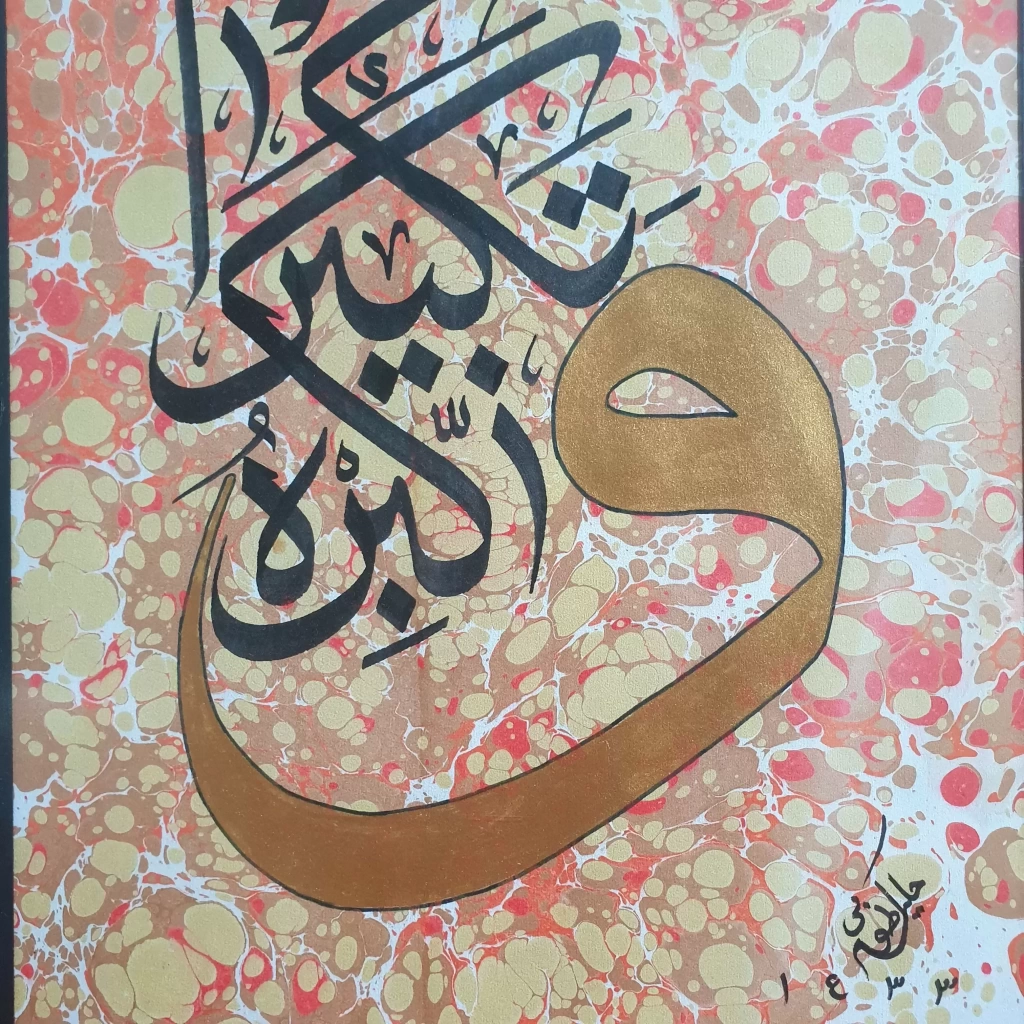 وَكَبِّرْهُ تَكْبِيرًا
١٤٣٣